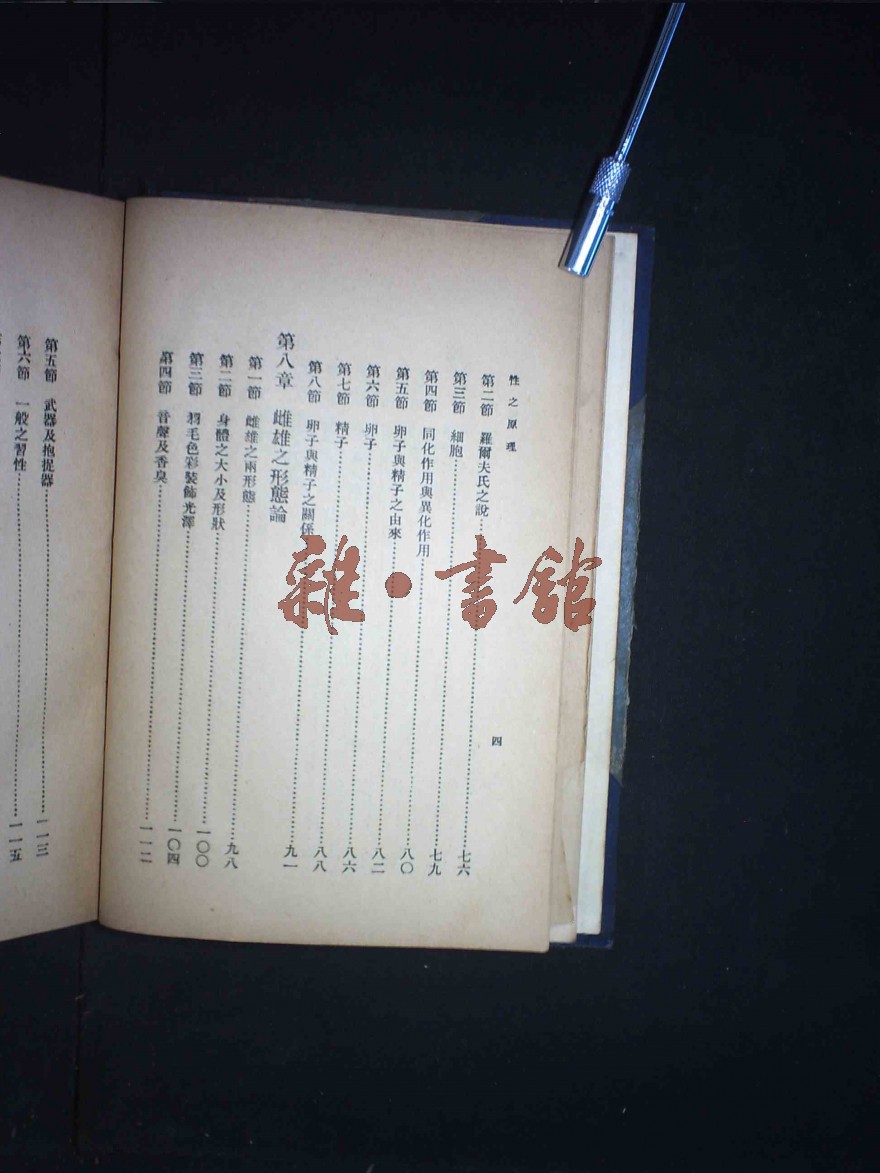 性之原理
四
第二節 羅爾夫氏之說……七六
第三節 細胞……七九
第四節 同化作用與異化作用……八〇
第五節 卵子與精子之由來……八二
第六節 卵子……八六
第七節 精子……八八
第八節 卵子與精子之關係……九一
第八章 雌雄之形態論
第一節 雌雄之兩形態……九八
第二節 身體之大小及形狀……一〇〇
第三節 羽毛色彩裝飾光澤……一〇四
第四節 音聲及香臭……一一二
第五節 武器及抱捉器……一一三
第六節 一般之習性……一一五
雜·書館